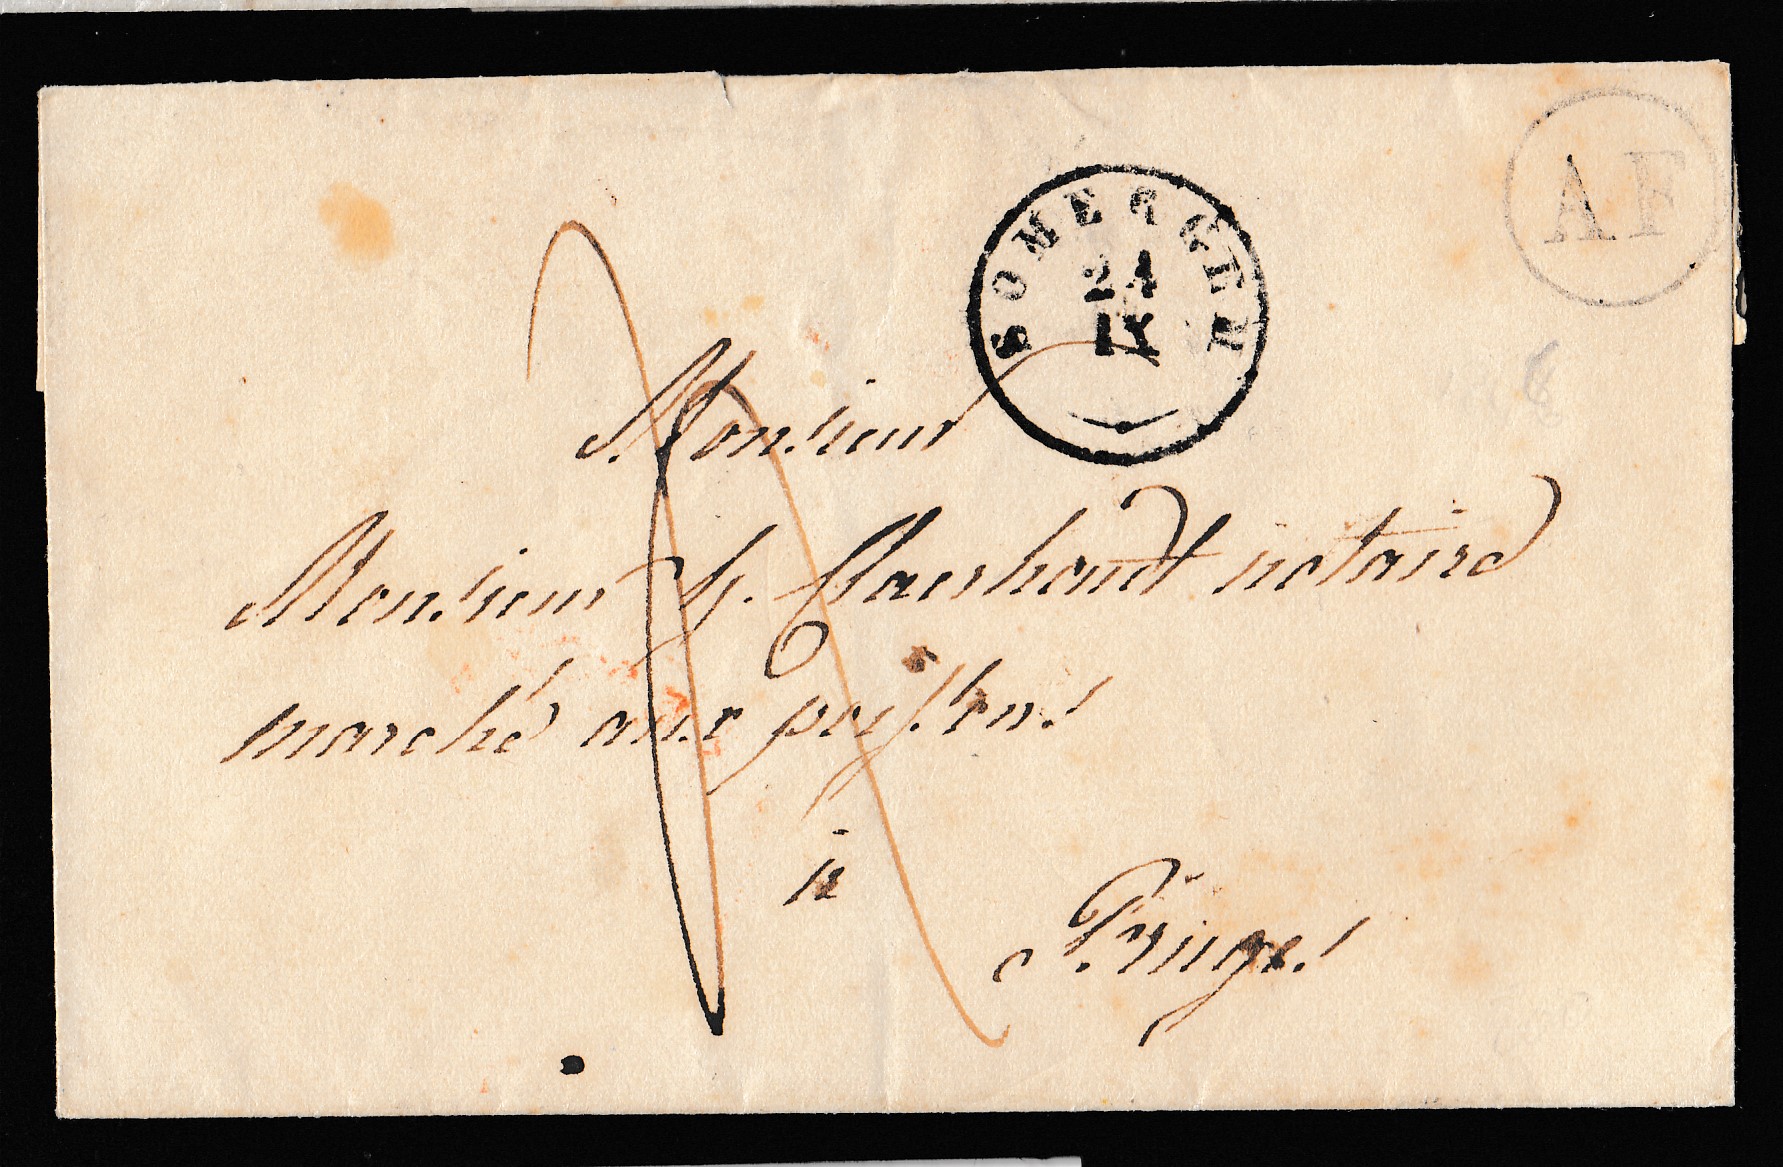 AF
SOMERGEM
24
IX
Monsieur
Monsieur
notaire
marché aux poissons
à
Bruges